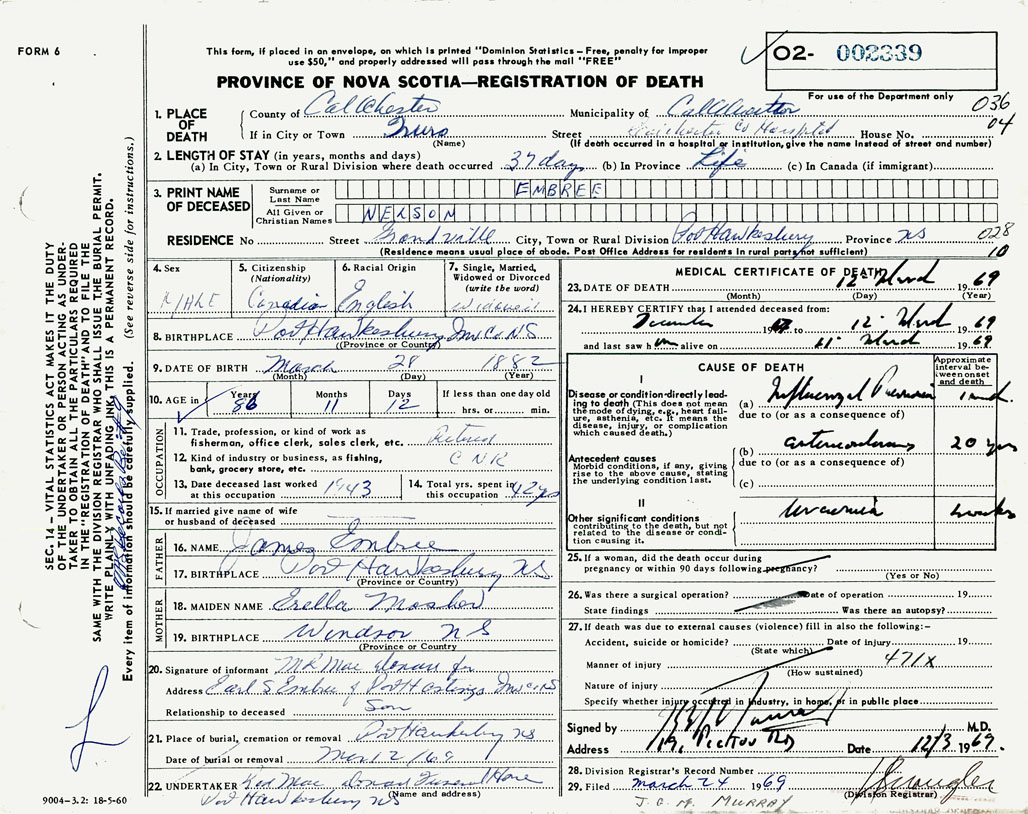 FORM 6
This form, if placed in an envelope, on which is printed "Dominion Statistics – Free, penalty for improper
use $50," and properly addressed will pass through the mail "FREE"
O2- 002339
PROVINCE OF NOVA SCOTIA—REGISTRATION OF DEATH
For use of the Department only
036
04
1. PLACE OF DEATH
County of Colchester Municipality of Colchester
If in City or Town Truro Street Colchester Co Hospital House No.
(Name) (If death occurred in a hospital or institution, give the name instead of street and number)
2. LENGTH OF STAY (in years, months and days)
(a) In City, Town or Rural Division where death occurred 37 days (b) In Province Life (c) In Canada (if immigrant)
3. PRINT NAME OF DECEASED
Surname or Last Name EMBREE
All Given or Christian Names NELSON
RESIDENCE No Street Grandville City, Town or Rural Division Port Hawkesbury Province NS
028
10
(Residence means usual place of abode. Post Office Address for residents in rural parts not sufficient)
4. Sex MALE
5. Citizenship (Nationality) Canadian
6. Racial Origin English
7. Single, Married, Widowed or Divorced (write the word) Widowed
8. BIRTHPLACE Port Hawkesbury Inv Co NS
(Province or Country)
9. DATE OF BIRTH March 28 1882
(Month) (Day) (Year)
10. AGE in Years 86 Months 11 Days 12 If less than one day old hrs. or min.
OCCUPATION
11. Trade, profession, or kind of work as
fisherman, office clerk, sales clerk, etc. Retired
12. Kind of industry or business, as fishing,
bank, grocery store, etc. CNR
13. Date deceased last worked
at this occupation 1943
14. Total yrs. spent in
this occupation 42 yrs
15. If married give name of wife
or husband of deceased
FATHER
16. NAME James Embree
17. BIRTHPLACE Port Hawkesbury NS
(Province or Country)
MOTHER
18. MAIDEN NAME Erella Mosher
19. BIRTHPLACE Windsor NS
(Province or Country)
20. Signature of informant
Address Earl S Embree Port Hastings Inv Co NS
Relationship to deceased Son
21. Place of burial, cremation or removal Port Hawkesbury NS
Date of burial or removal
22. UNDERTAKER Funeral Home
(Name and address)
Port Hawkesbury NS
MEDICAL CERTIFICATE OF DEATH
23. DATE OF DEATH 12 March 1969
(Month) (Day) (Year)
24. I HEREBY CERTIFY that I attended deceased from:
December 19 to 12 March 1969
and last saw him alive on 11 March 1969
CAUSE OF DEATH
Approximate interval between onset and death
I
Disease or condition directly leading
to death (This does not mean
the mode of dying, e.g., heart failure,
asthenia, etc. It means the
disease, injury, or complication
which caused death.)
(a) Influenzal Pneumonia
due to (or as a consequence of)
Antecedent causes
Morbid conditions, if any, giving
rise to the above cause, stating
the underlying condition last.
(b) arteriosclerosis 20 yrs
due to (or as a consequence of)
(c)
II
Other significant conditions
contributing to the death, but not
related to the disease or condition
causing it.
uraemia weeks
25. If a woman, did the death occur during
pregnancy or within 90 days following pregnancy?
(Yes or No)
26. Was there a surgical operation? Date of operation 19
State findings Was there an autopsy?
27. If death was due to external causes (violence) fill in also the following:-
Accident, suicide or homicide? Date of injury 19
(State which)
Manner of injury 471X
(How sustained)
Nature of injury
Specify whether injury occurred in industry, in home, or in public place
Signed by M.D.
Address Pictou Rd Date 12/3 1969.
28. Division Registrar's Record Number
29. Filed March 24 1969
(Division Registrar)
J. G. M. MURRAY
9004-3.2: 18-5-60
SEC. 14 – VITAL STATISTICS ACT MAKES IT THE DUTY
OF THE UNDERTAKER OR PERSON ACTING AS UNDERTAKER
TO OBTAIN ALL THE PARTICULARS REQUIRED
IN THE "REGISTRATION OF DEATH" AND TO FILE THE
SAME WITH THE DIVISION REGISTRAR WHO SHALL ISSUE THE BURIAL PERMIT.
WRITE PLAINLY WITH UNFADING INK, THIS IS A PERMANENT RECORD.
Every item of information should be carefully supplied. (See reverse side for instructions.)